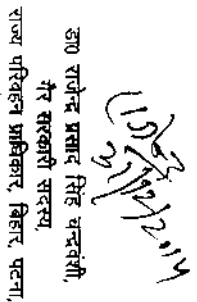 डा० राजेन्द्र प्रसाद सिंह चन्द्रवंशी,
गैर सरकारी सदस्य,
राज्य परिवहन प्राधिकार, बिहार, पटना,